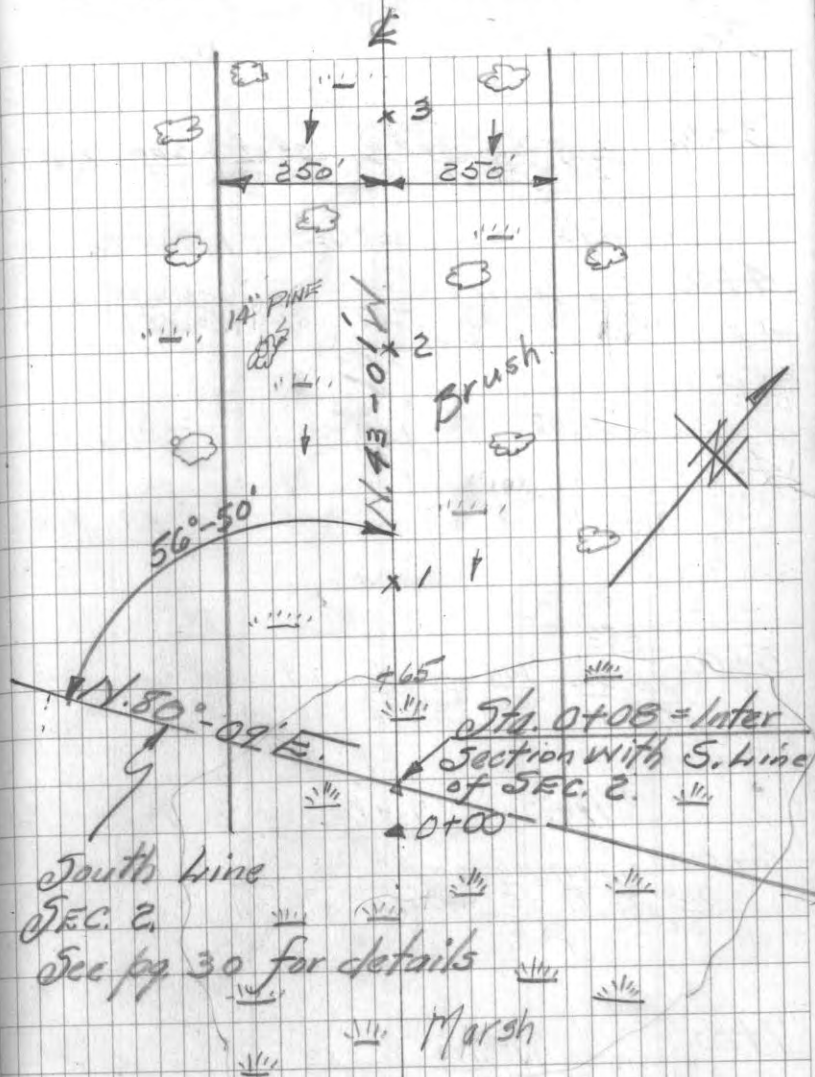 ℄
3
250' 250'
14" PINE
2
N. 43-01' W
Brush
56°-50'
1
N. 80°-09' E.
+65
Sta. 0+08 = Inter
Section with S. Line
of SEC. 2.
0+00
South Line
SEC. 2.
See pg. 30 for details
Marsh